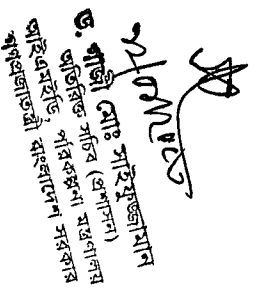 ড. গাজী মোঃ সাইফুজ্জামান
অতিরিক্ত সচিব (প্রশাসন)
আইএমইডি, পরিকল্পনা মন্ত্রণালয়
গণপ্রজাতন্ত্রী বাংলাদেশ সরকার